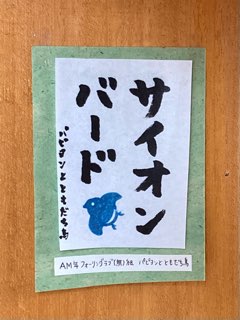 サイオン
バード
パピヨンとともだち鳥
AM4 フォーリングラブ(無)社 パピヨンとともだち鳥